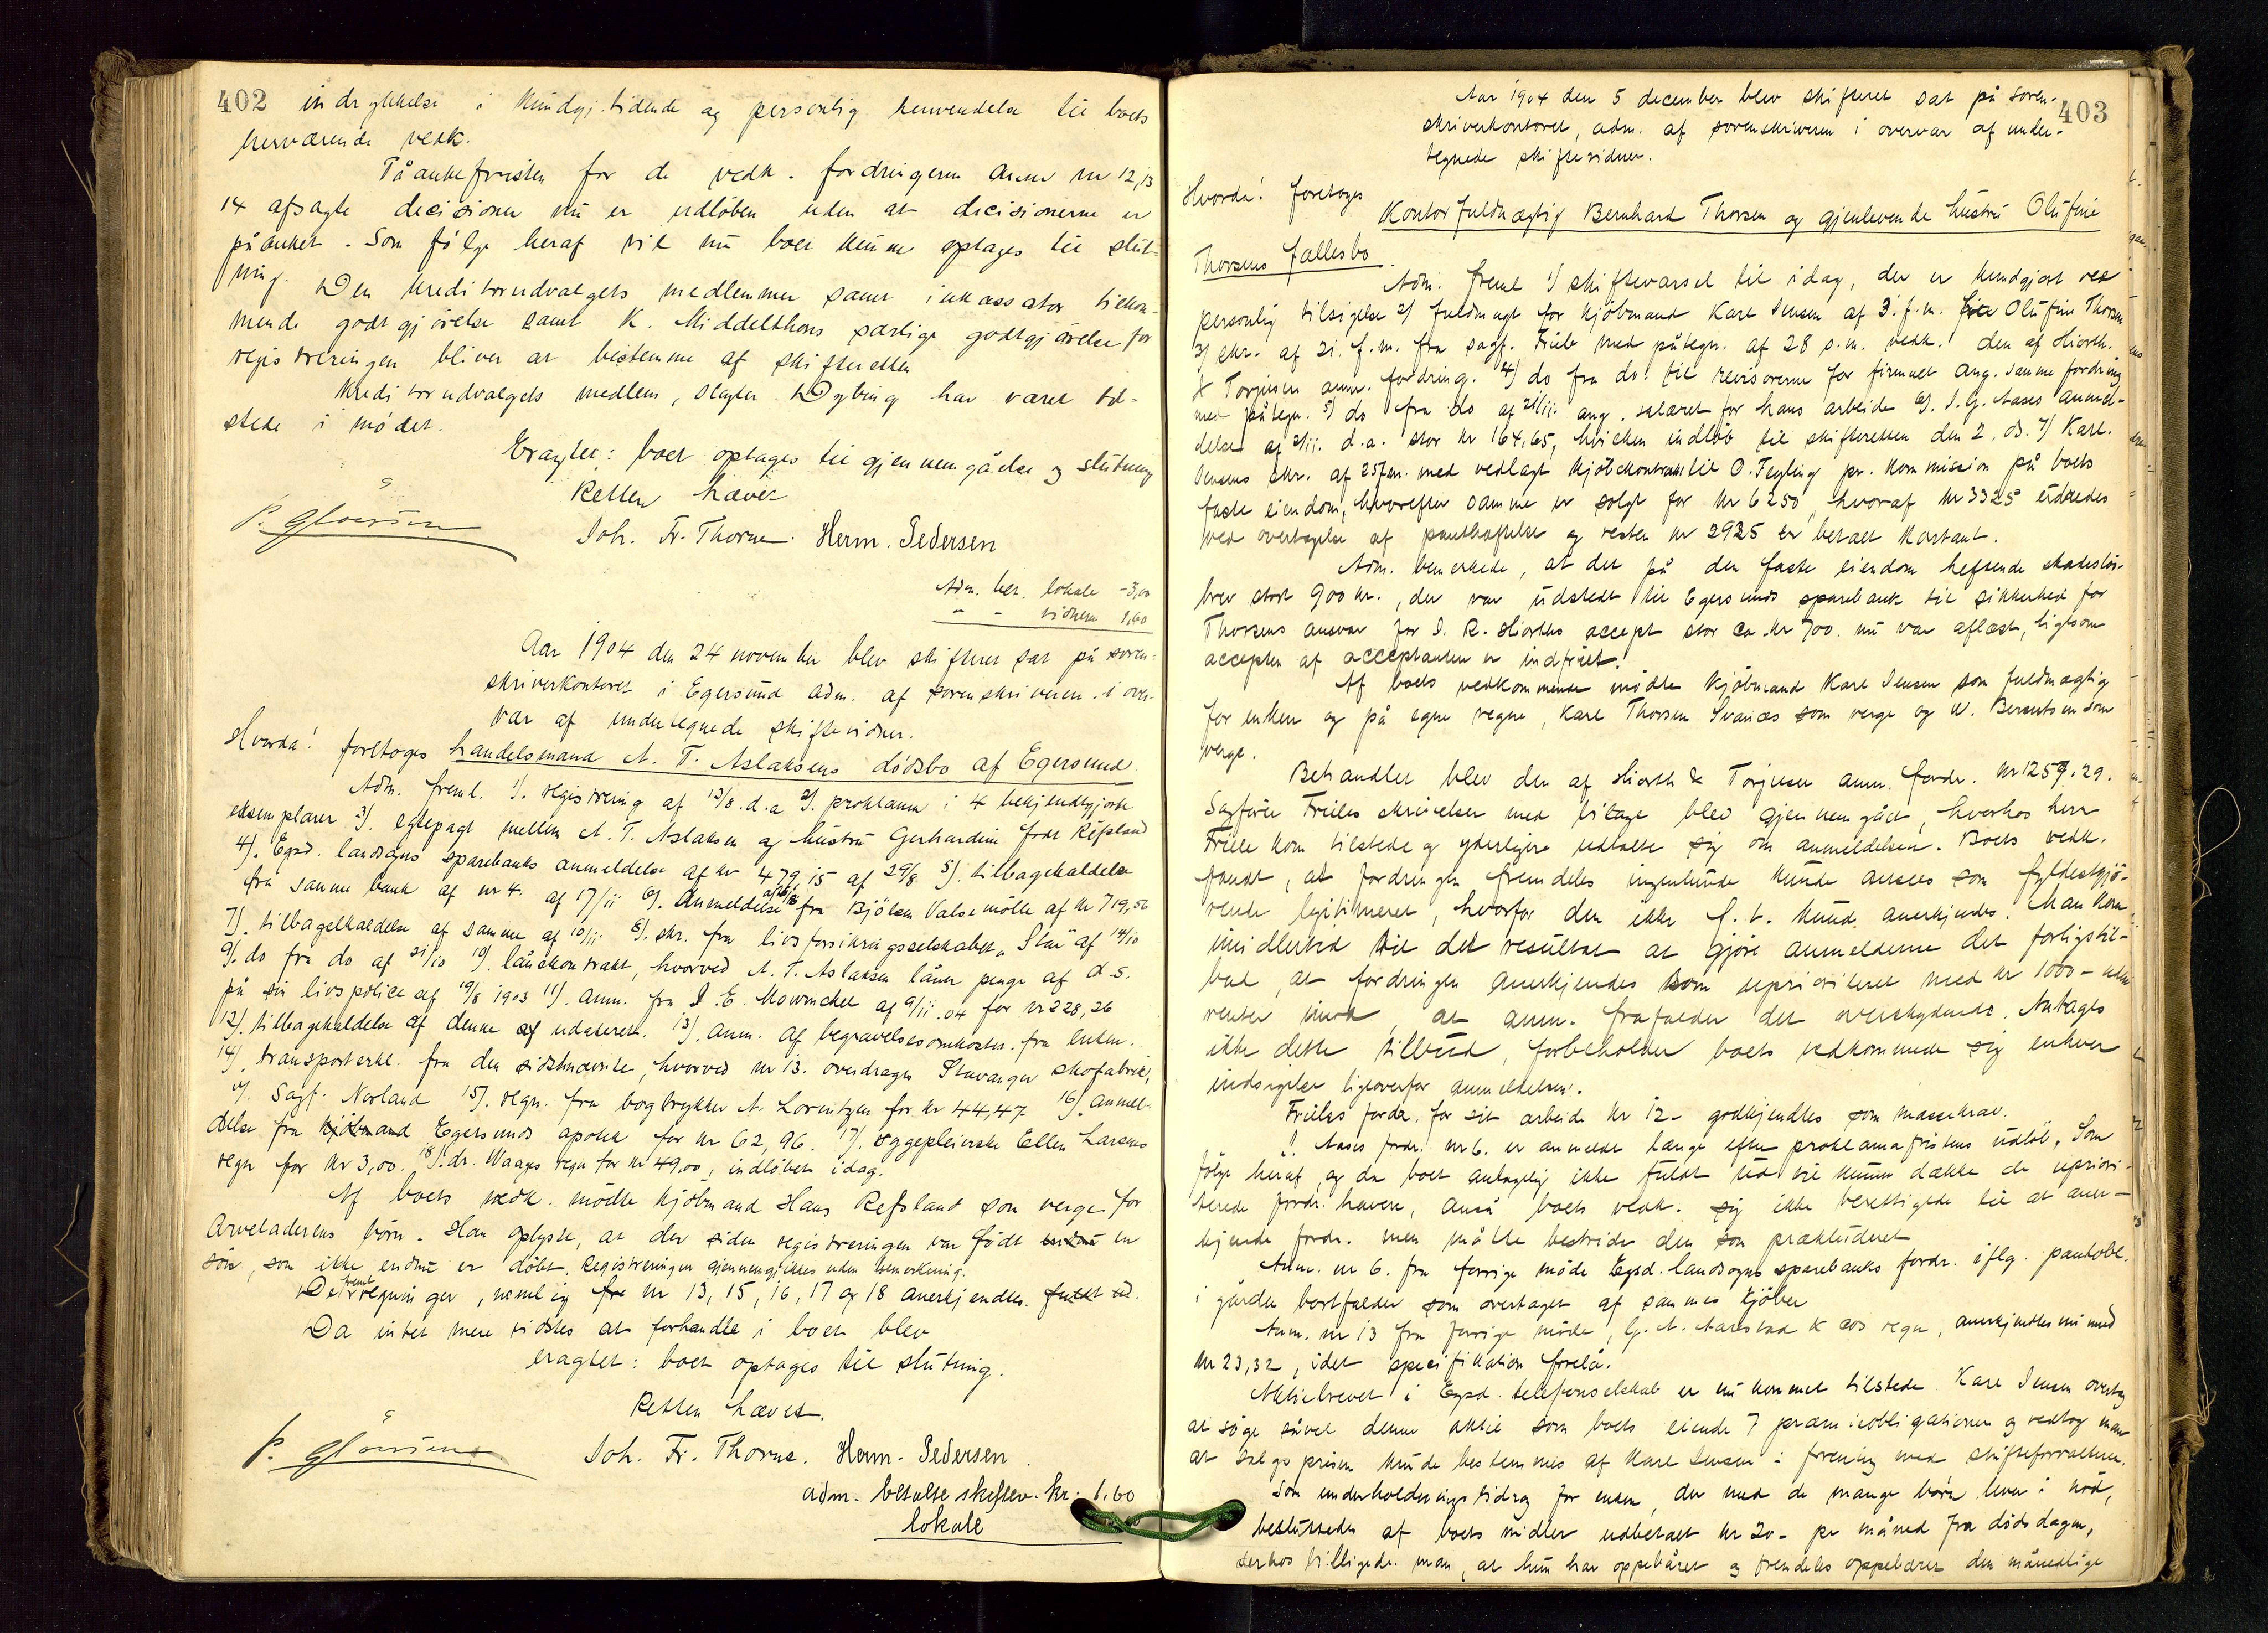 402 indrykkelse i Kundgj.tidende og personlig henvendelse til boets
herværende vedk.
Påankefristen for de vedk. fordringerne anm nr 12, 13
14 afsagte decisioner nu er udløben uden at decisionerne er
påanket. Som følge heraf vil nu boet kunne optages til slut-
ning. Den kreditorudvalgets medlemmer samt inkassator tilkom-
mende godtgjörelse samt K. Middelthons særlige godtgjörelse for
registreringen bliver at bestemme af skifteretten
Kreditorudvalgets medlem, slagter Dybing har været til-
stede i mödet.
Eragtet: boet optages til gjennemgåelse og slutning
Retten hævet
Joh. Fr. Thorne. Herm. Pedersen
Adm. ber. lokale - 3,00
" - vidnerne 1,60
Aar 1904 den 24 november blev skifteret sat på soren-
skriverkontoret i Egersund adm. af sorenskriveren i over-
vær af undertegnede skiftevidner.
Hvorda! foretoges handelsmand A. T. Aslaksens dödsbo af Egersund
Adm. freml. 1). registrering af 13/8. d.a 2). proklama i 4 bekjendtgjorte
eksemplarer 3). egtepagt mellem A. T. Aslaksen og hustru Gerhardine födt Refsland
4). Egsd. landsogns sparebanks anmeldelse af kr 479,15 af 29/8 5). tilbagekaldelse
fra samme bank af nr 4. af 17/11 6). Anmeldelse fra Bjölsen Valsemölle af kr 719,50
7). tilbagekaldelse af samme af 10/11 8). skr. fra livsforsikringsselskabet "Star" af 14/10
9). do fra do af 21/10 10). lånekontrakt, hvorved A. T. Aslaksen låner penge af d.s.
på sin livspolice af 19/8 1903 11). anm. fra J. E. Mowinckel af 9/11.04 for kr 228,26
12). tilbagekaldelse af denne af udateret. 13). anm. af begravelsesomkostn. fra enken.
14). transporterkl. fra den sidstnævnte, hvorved nr 13. overdrages Stavanger skofabrik,
v). Sagf. Norland 15). regn. fra bogtrykker A. Lorentzen for kr 44,47 16). anmel-
delse fra kjöbmand Egersunds apotek for kr 62,96. 17). sygepleierske Ellen Larsens
regn for kr 3,00. 18). dr. Waages regn for kr 49,00, indlöbet idag.
Af boets vedk. mödte kjöbmand Hans Refsland som verge for
Arveladerens börn. Han oplyste, at der siden registreringen var födt endnu en
sön, som ikke endnu er döbt. Registreringen gjennemgikkes uden bemerkning.
De freml regninger, nemlig fra nr 13, 15, 16, 17 og 18 anerkjendtes. fuldt ud.
Da intet mere vidstes at forhandle i boet blev
eragtet: boet optages til slutning.
Retten hævet.
Joh. Fr. Thorne. Herm. Pedersen.
adm. betalte skiftev. kr. 1.60
lokale
403
Aar 1904 den 5 december blev skifteret sat på soren-
skriverkontoret, adm. af sorenskriveren i overvær af under-
tegnede skiftevidner.
Hvorda! foretoges
Kontorfuldmægtig Bernhard Thorsen og gjenlevende hustru Olufine
Thorsens fællesbo
Adm. freml 1) skiftevarsel til idag, der er kundgjort ved
personlig tilsigelse 2) fuldmagt for kjöbmand Karl Jensen af 3. f.m. fra Olufine Thorsen
3) skr. af 21. f.m. fra sagf. Friele med påtegn. af 28 s.m. vedk. den af Hiorth
& Torjusen anm. fordring. 4) do fra do. til revisorerne for firmaet ang. samme fordring
med påtegn. 5) do fra do af 21/11. ang. salæret for hans arbeide 6). I. G. Aases anmel-
delse af 2/11. d.a. stor kr 164,65, hvilken indlöb til skifteretten den 2. ds. 7) Karl
Jensens skr. af 25 f.m. med vedlagt kjöbekontrakt til O. Tegling pr. kommission på boets
faste eiendom, hvorefter samme er solgt for kr 6250, hvoraf kr 3325 udredes
ved overtagelse af pantheftelse og resten kr 2925 er betalt kontant.
Adm. bemerkede, at det på den faste eiendom heftende skadeslös-
brev stort 900 kr., der var udstedt til Egersunds sparebank til sikkerhed for
Thorsens ansvar for I. R. Hiorths accept stor ca kr 700. nu var aflæst, ligesom
accepten af acceptanten er indfriet.
Af boets vedkommende mödte kjöbmand Karl Jensen som fuldmægtig
for enken og på egne vegne, Karl Thorsen Svanes som verge og W. Berentsen som
verge.
Behandlet blev den af Hiorth & Torjusen anm. fordr. kr 1259.29.
Sagförer Frieles skrivelser med bilage blev gjennemgået, hvorhos herr
Friele kom tilstede og yderligere udtalte sig om anmeldelsen. Boets vedk.
fandt, at fordringen fremdeles ingenlunde kunde ansees som fyldestgjö-
rende legitimeret, hvorfor den ikke f. t. kund anerkjendes. Man kom
imidlertid til det resultat at gjöre anmelderne det forligstil-
bud, at fordringen anerkjendes som uprioriteret med kr 1000 - uden
renter imod, at anm. frafalder det overskydende. Antages
ikke dette tilbud, forbeholder boets vedkommende sig enhver
indsigelse ligeoverfor anmeldelsen.
Frieles fordr. for sit arbeide kr 12 - godkjendtes som massekrav.
I. Aases fordr. nr 6. er anmeldt længe efter proklamafristens udlöb. Som
fölge heraf, og da boet antagelig ikke fuldt ud vil kunne dække de upriori-
terede fordr. havere, anså boets vedk. sig ikke berettigede til at aner-
kjende fordr. men måtte bestride den som prækluderet
Anm. nr 6. fra forrige möde Egsd. landsogns sparebanks fordr. iflg. pantobl.
i gården bortfalder som overtaget af sammes kjöber
Anm. nr 13 fra forrige möde, G. A. Aarstad & cos regn, anerkjendtes nu med
kr 23,32, idet specifikation forelå.
Aktiebrevet i Egsd. telefonselskab er nu kommet tilstede. Karl Jensen overtog
at söge såvel denne aktie som boets eiende 7 præmieobligationer og vedtog man
at salgsprisen kunde bestemmes af Karl Jensen i forening med skifteforvalteren.
Som underholdningsbidrag for enken, der med de mange börn lever i nöd,
besluttedes af boets midler udbetalt kr 20 - pr måned fra dödsdagen,
derhos billigede man, at hun har oppebåret og fremdeles oppebærer den månedlige